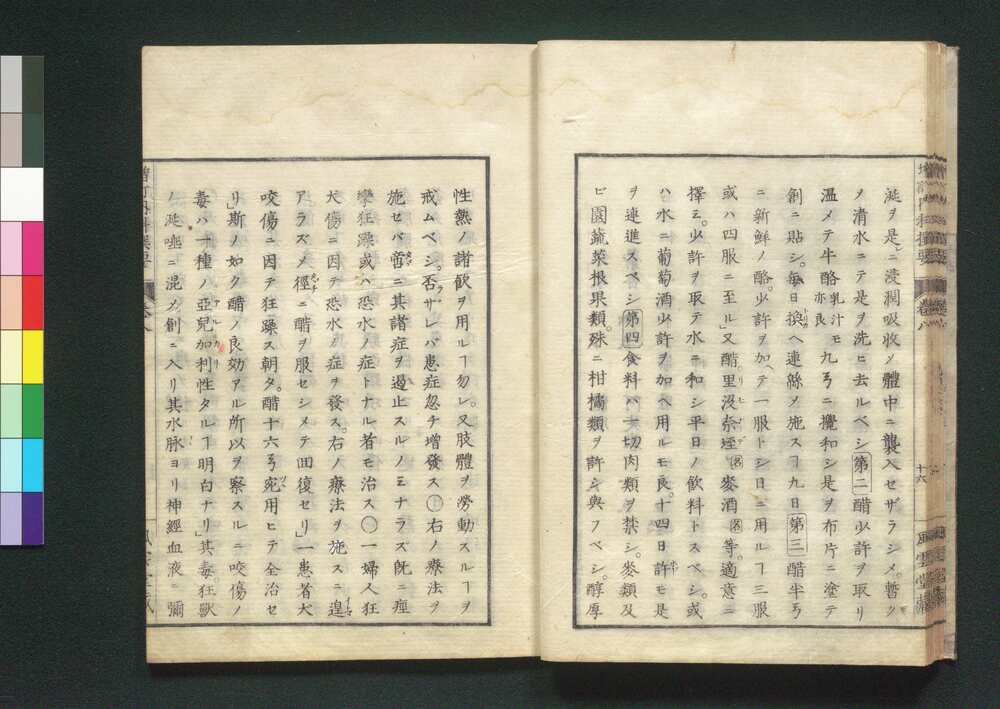 涎ヲ是ニ浸潤吸收ノ體中ニ襲入セザラシメ。暫ク
メ清水ニテ是ヲ洗ヒ去ルベシ第二醋少許ヲ取リ
溫メテ牛酪乳汁亦良モ九弓ニ攪和シ是ヲ布片ニ塗テ
創ニ貼シ。每日換ヘ連綿メ施スヿ九日第三醋半弓
ニ新鮮ノ酪。少許ヲ加ヘテ一服トシ日ニ用ルヿ三服
或ハ四服ニ至ル」又醋里沒奈埊名麥酒名等。適意ニ
擇ミ。少許ヲ取テ水ニ和シ平日ノ飲料トスベシ。或
ハ水ニ葡萄酒少許ヲ加ヘ用ルモ良。十四日許モ是
ヲ連進スベシ第四食料ハ一切肉類ヲ禁シ。麥類及
ビ園蔬菜根果類。殊ニ柑橘類ヲ許シ與フベシ。醇厚
性熱ノ諸飲ヲ用ルヿ勿レ。又肢體ヲ勞動スルヿヲ
戒ムベシ。否ザレバ患症忽チ增發ス○右ノ療法ヲ
施セバ啻ニ其諸症ヲ遏止スルノミナラズ既ニ痙
攣狂躁或ハ恐水ノ症トナル者モ治ス○一婦人狂
犬傷ニ因テ恐水ノ症ヲ發ス。右ノ療法ヲ施スニ遑
アラズメ徑ニ醋ヲ服セシメテ回復セリ」一患者犬
咬傷ニ因テ狂躁ス朝タ。醋十六弓宛用ヒテ全治セ
リ斯ノ如ク醋ノ良効アル所以ヲ察スルニ咬傷ノ
毒ハ一種ノ亞兒加利性タルヿ明白ナリ」其毒。狂獸
ノ涎唾ニ混メ創ニ入リ其水脉ヨリ神經血液ニ彌
十六